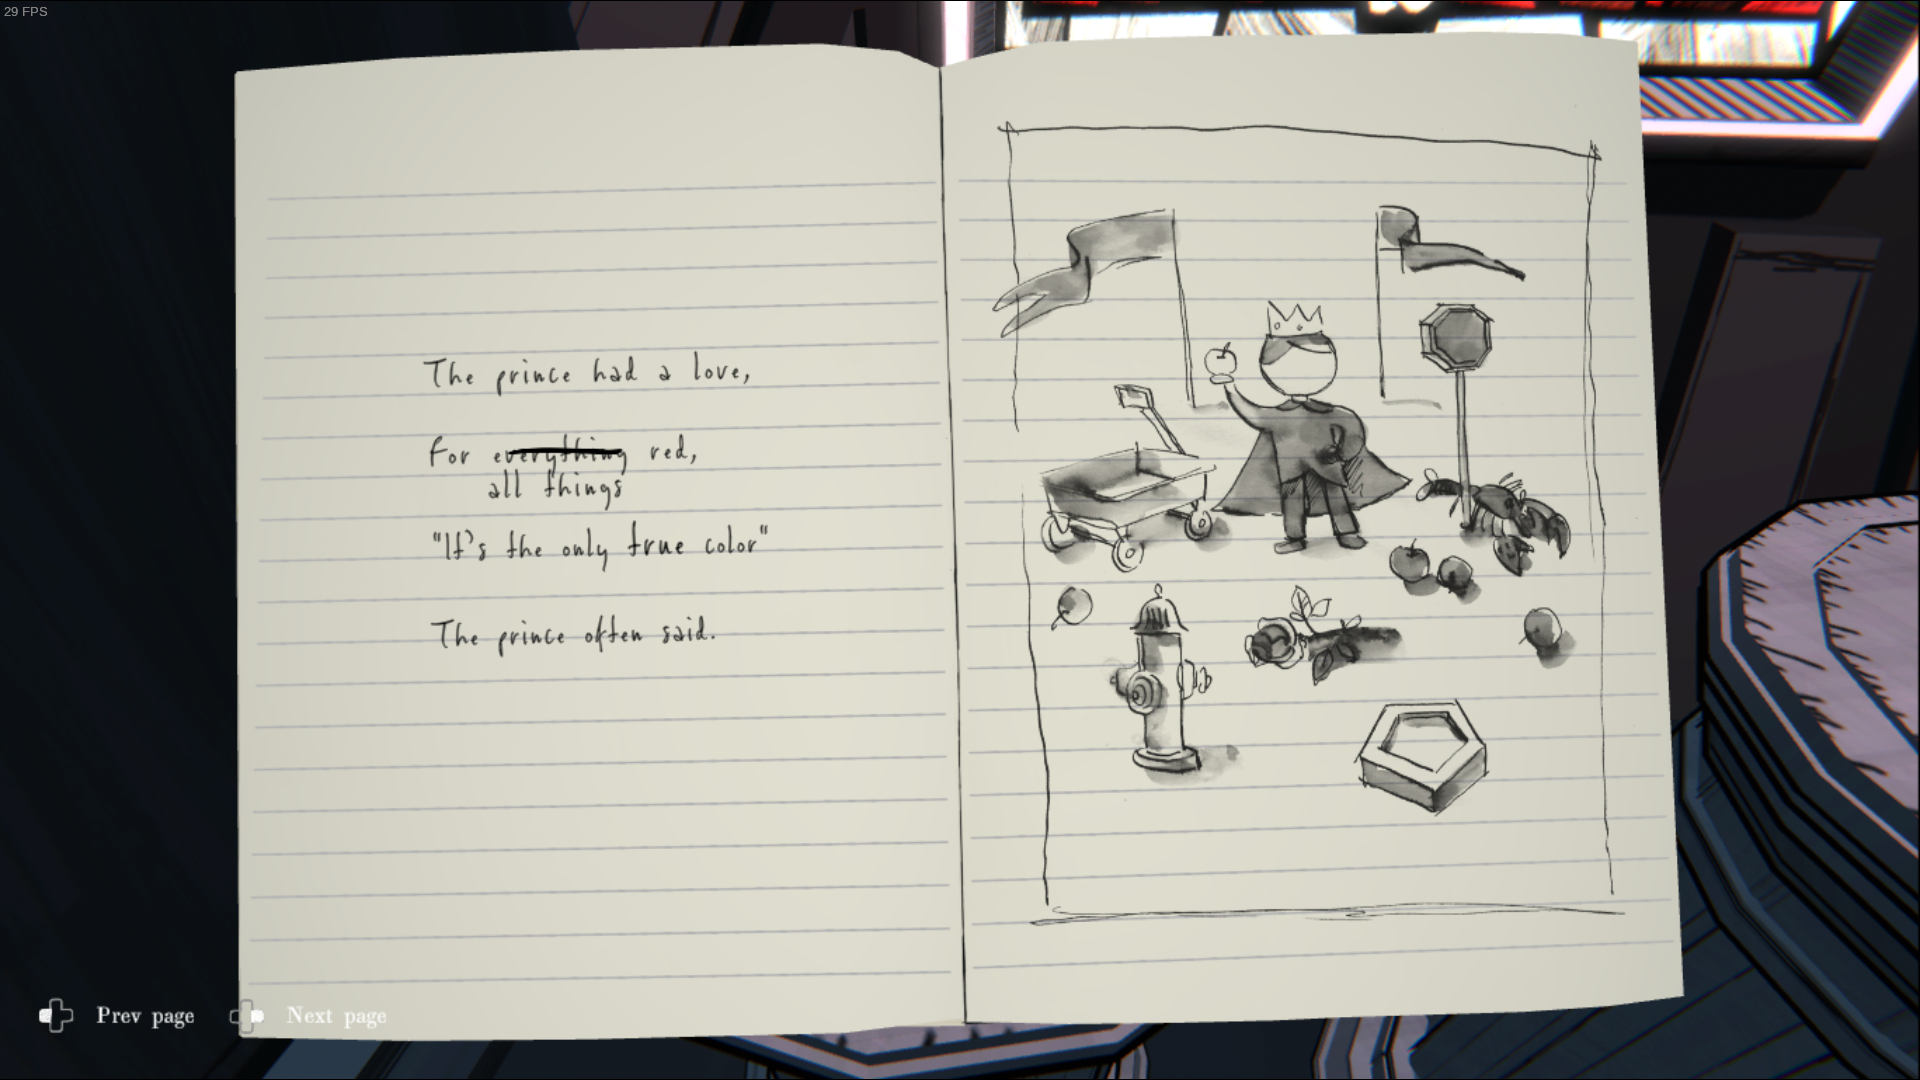 29 FPS
The prince had a love,
For everything red,
all things
"It's the only true color"
The prince often said.
Prev page
Next page